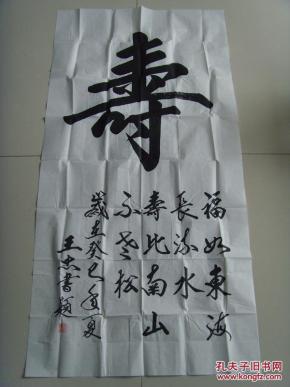 壽
福如東海
長流水
壽比南山
不老松
歲在癸巳年夏
王忠書題
孔夫子旧书网